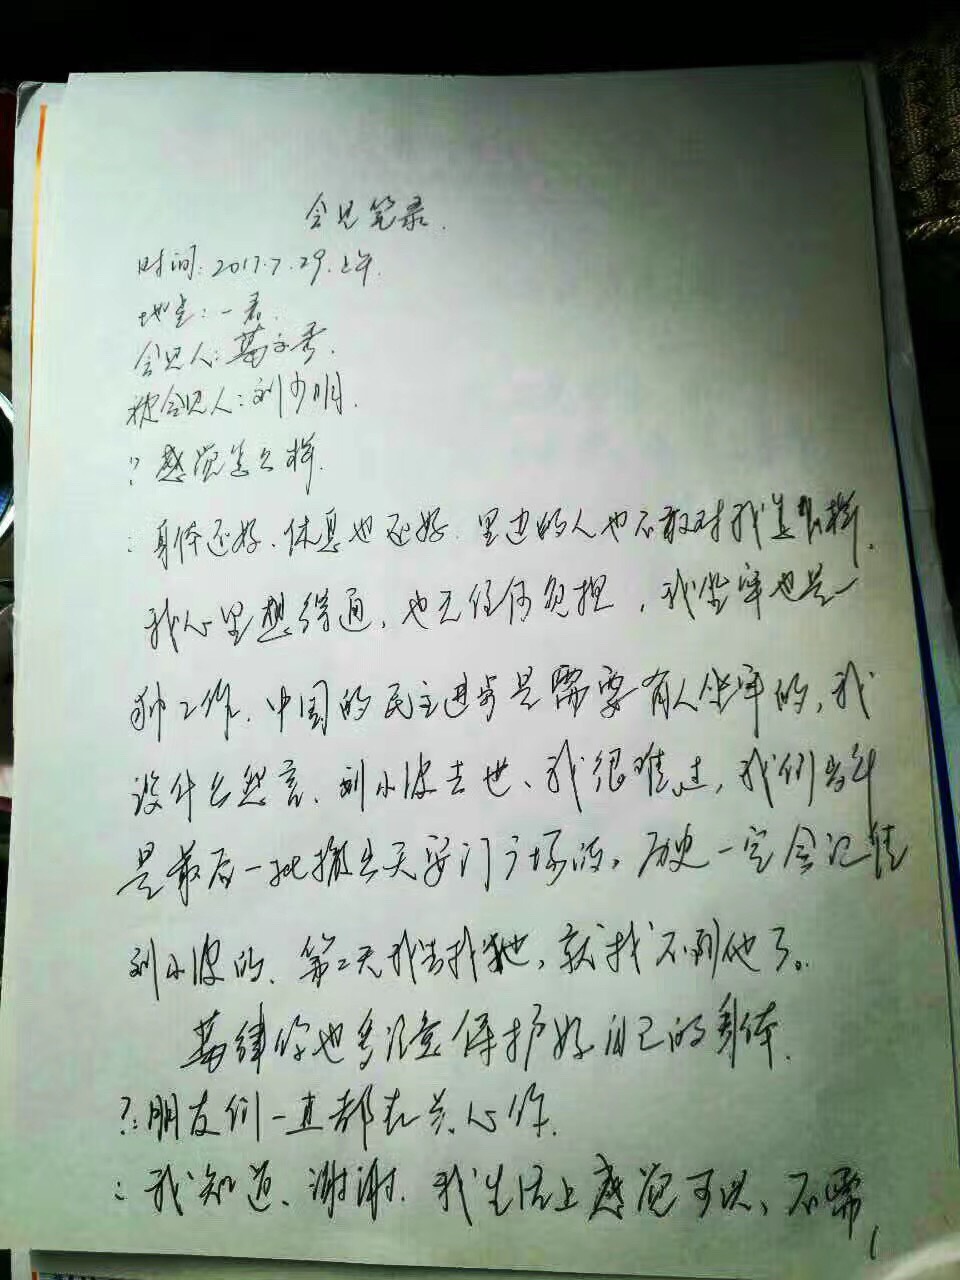 会见笔录.
时间:2017.7.29.上午.
地点:一看.
会见人:葛永秀.
被会见人:刘少明.
?感觉怎么样.
:身体还好、休息也还好.里边的人也不敢对我怎么样.
我心里想得通,也无任何负担,我坐牢也是一
种工作.中国的民主进步是需要有人坐牢的,我
没什么怨言、刘小波去世、我很难过,我们当年
是最后一批撤出天安门广场的。历史一定会记住
刘小波的、第二天我去找他,就找不到他了。
葛律你也多注意保护好自己的身体.
?:朋友们一直都在关心你.
:我知道、谢谢.我生活上感觉可以、不需
1